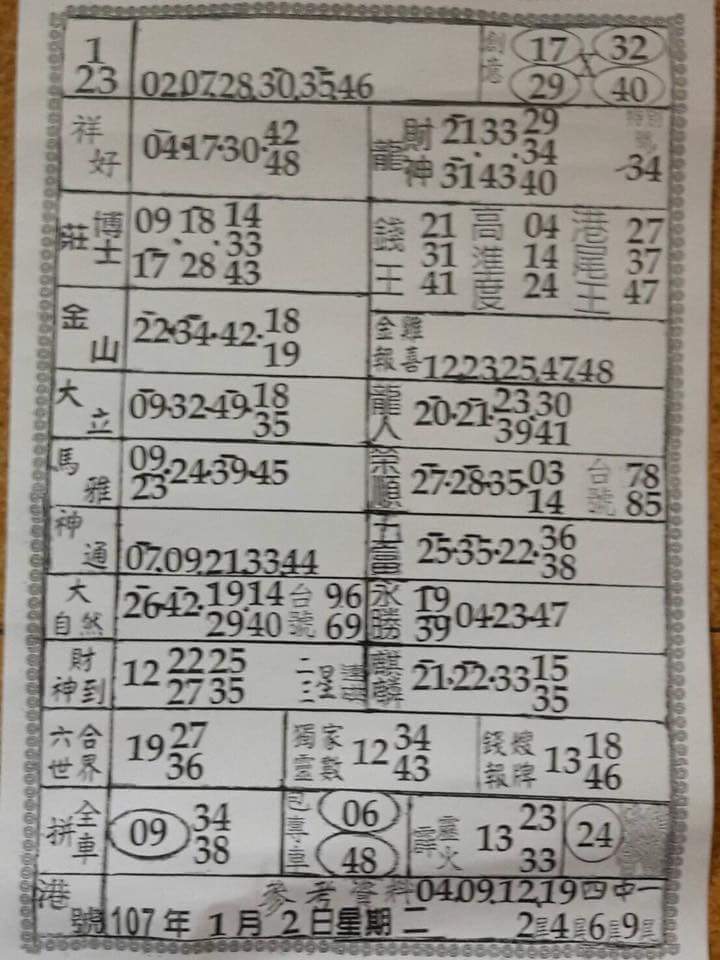 1
23
02.07.28.30.35.46
創意 17 X 32
29 40
祥好 04·17·30·42
48
龍 財神 21 33 29
34
31 43 40
特別號 34
莊 博士 09 18 14
33
17 28 43
錢王 21 高進度 04 港尾王 27
31 14 37
41 24 47
金山 22·34·42·18
19
金雞報喜 12.23.25.47.48
大立 09·32·49·18
35
龍人 20·21·23.30
39 41
馬雅 09·24·39·45
23
榮順 27·28·35·03 台號 78
14 85
神通 07.09.21.33.44
五富 25·35·22·36
38
大自然 26·42·19.14 台號 96
29 40 69
永勝 19 04·23·47
39
財神到 12 22 25 二三星連碰
27 35
麒麟 21·22·33 15
35
六合世界 19 27
36
獨家靈數 12 34
43
錢嫂報牌 13 18
46
全車拼 09 34
38
包專車 06
48
靈火霹 13 23
33
24
港號 參考資料 04.09.12.19 四中一
107年 1月 2日星期二 2尾4尾6尾9尾